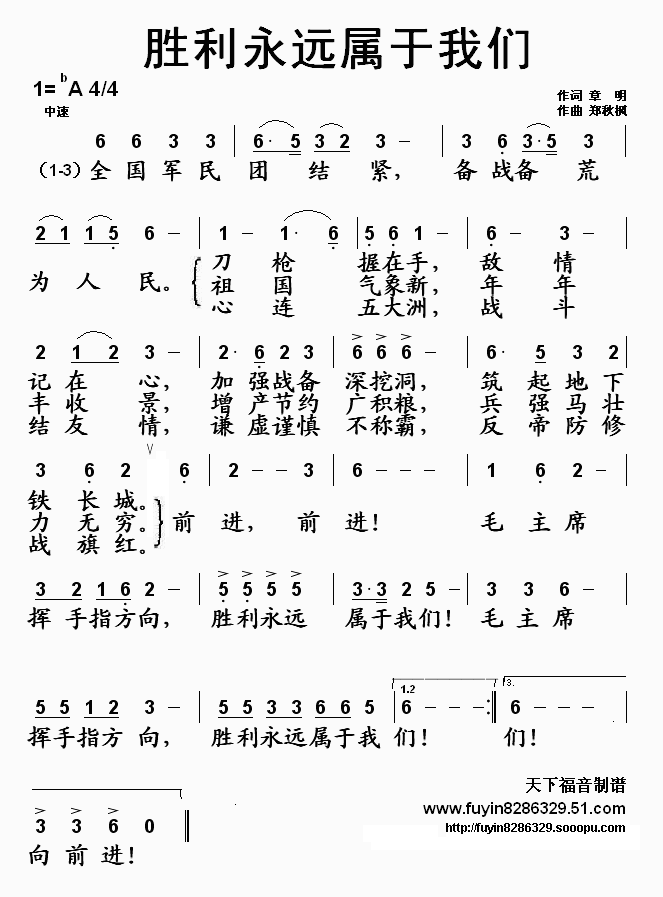 胜利永远属于我们
1=ᵇA 4/4
中速
作词 章 明
作曲 郑秋枫
6 6 3 3 | 6· 5 3 2 3 – | 3 6 3·5 3 |
(1-3) 全国军民 团 结 紧， 备战备 荒
2 1 1 5 6 – | 1 – 1· 6 | 5 6 1 – | 6 – 3 – |
为人民。 { 刀 枪 握在手， 敌 情
祖 国 气象新， 年 年
心 连 五大洲， 战 斗
2 1 2 3 – | 2· 6 2 3 | 6 6 6 – | 6· 5 3 2 |
记在 心， 加 强战备 深挖洞， 筑 起地下
丰收 景， 增 产节约 广积粮， 兵 强马壮
结友 情， 谦 虚谨慎 不称霸， 反 帝防修
3 6 2 ∨ 6 | 2 – – 3 | 6 – – – | 1 6 2 – |
铁 长 城。
力 无 穷。 } 前 进， 前 进！ 毛 主 席
战 旗 红。
3 2 1 6 2 – | 5 5 5 5 | 3·3 2 5 – | 3 3 6 – |
挥 手指方向， 胜利永远 属于我们！ 毛 主 席
5 5 1 2 3 – | 5 5 3 3 6 6 5 | 1.2 6 – – :‖ 3. 6 – – |
挥手指方 向， 胜利永远属于我 们！ 们！
天下福音制谱
www.fuyin8286329.51.com
http://fuyin8286329.sooopu.com
3 3 6 0 ‖
向前进！